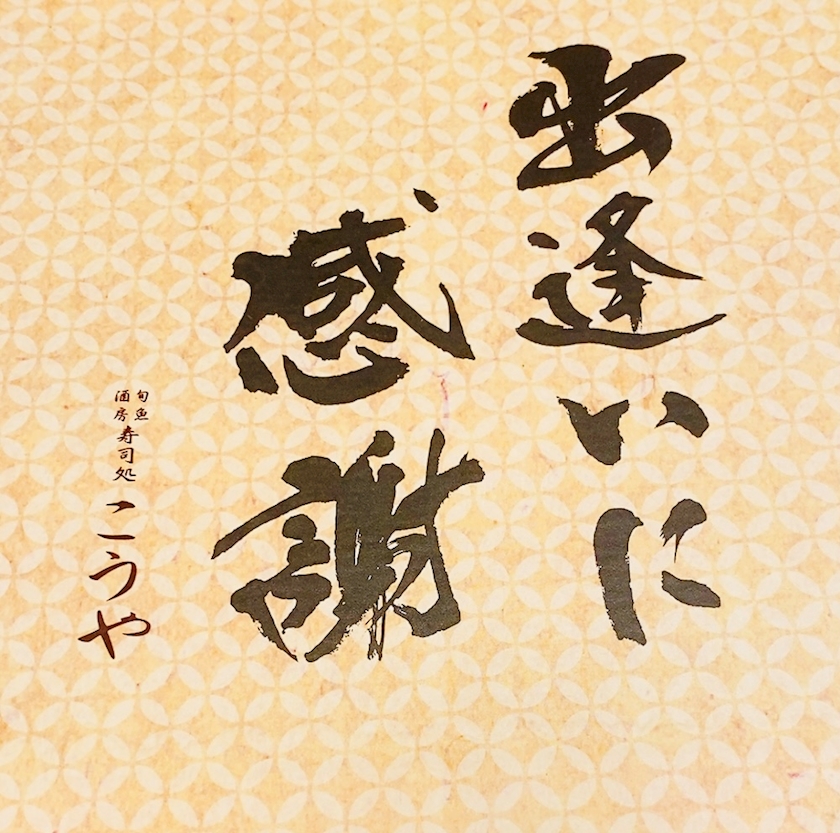 出逢いに
感謝
旬魚
酒房
寿司処
こうや